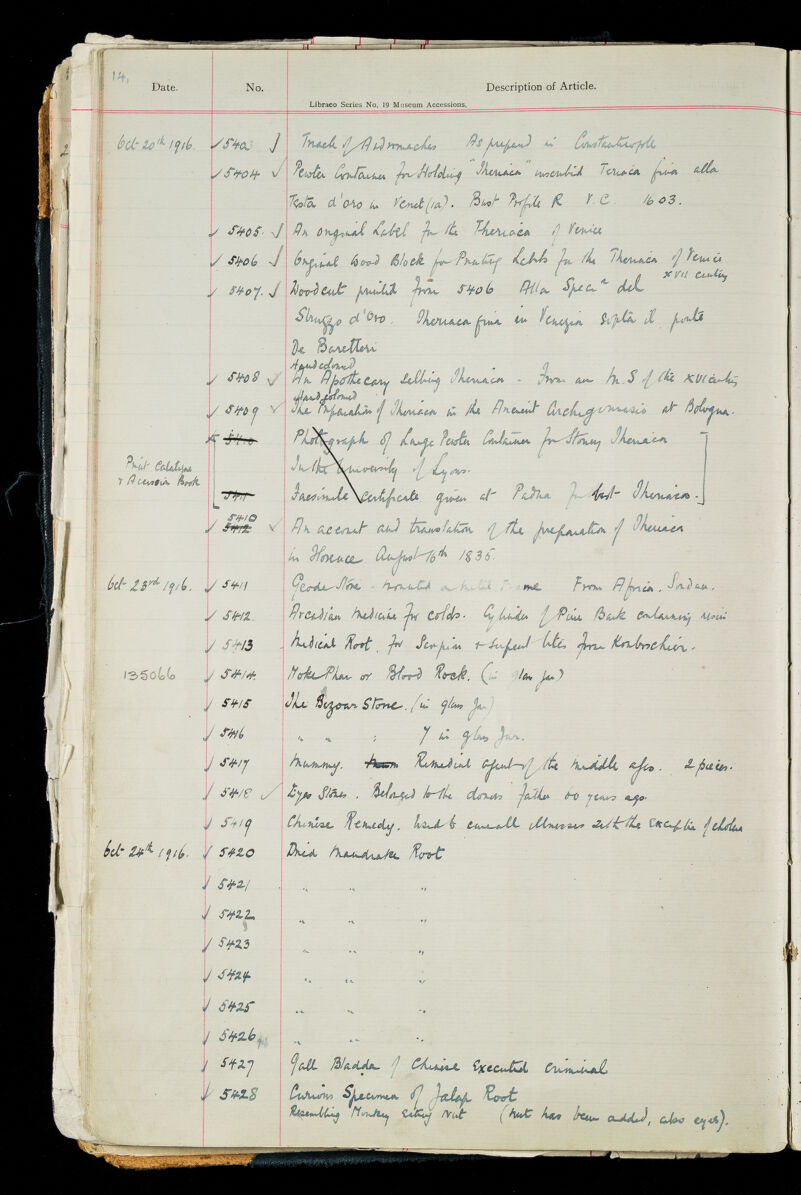 14.
Date. No. Description of Article.
Libraco Series No. 19 Museum Accessions.
Oct 20th 1916. 540 Treacle of Andromaches As prepared in Constantinople
5404 Pewter Container for Holding "Theriaca" inscribed Teriaca fina alla
Testa d'oro in Venet(ia). Bust Profile R V.C. 1603.
5405. An original Label for the Theriaca of Venice
5406 Original Wood Block for Printing Labels for the Theriaca of Venice
XVII century
5407. Woodcut printed from 5406 Alla Specn del
Struzzo d'Oro. Theriaca fina in Venezia Sopta il ponte
De Baretteri
Hand coloured
5408 An Apothecary Selling Theriaca - From an M.S of the XVI century
Hand coloured
5409 The Preparation of Theriaca in the Ancient Archigymnasio at Bologna.
Photograph of Large Pewter Container for Storing Theriaca
In the University of Lyons.
Print Catalogue
& Accession Book
5411 Facsimile Certificate given at Padua for best Theriaca.
5410
5412 An account and translation of the preparation of Theriaca
in Florence August 16th 1835.
Oct 23rd 1916. 5411 Geode Stone - mounted on metal frame From Africa. Soudan.
5412. Arcadian Medicine for colds. Cylinder of Pine Bark containing resin
5413 Medical Root. for Scorpion & serpent bites from
135066 5414. Moke Phar or Blood Rock. (in glass jar)
5415 The Bezoar Stone. (in glass Jar)
5416 " " : 7 in glass Jar.
5417 Mummy. Remedial agent of the middle ages. 2 pieces.
5418 Eyes Stones. Belonged to the donors father 60 years ago.
5419 Chinese Remedy. Used to cure all illnesses with the exception of cholera
Oct 24th 1916. 5420 Dried Mandrake Root
5421 " " "
5422 " " "
5423 " " "
5424 " " "
5425 " " "
5426 " " "
5427 Gall Bladder of Chinese Executed criminal
5428 Curious Specimen of Jalap Root
Resembling Monkey Eating Nut (nut has been added, also eyes).